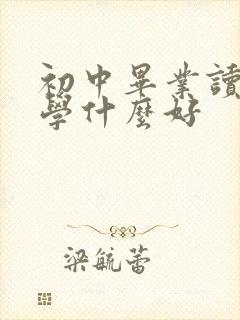 初中畢業讀
學什麼好
梁毓蕾